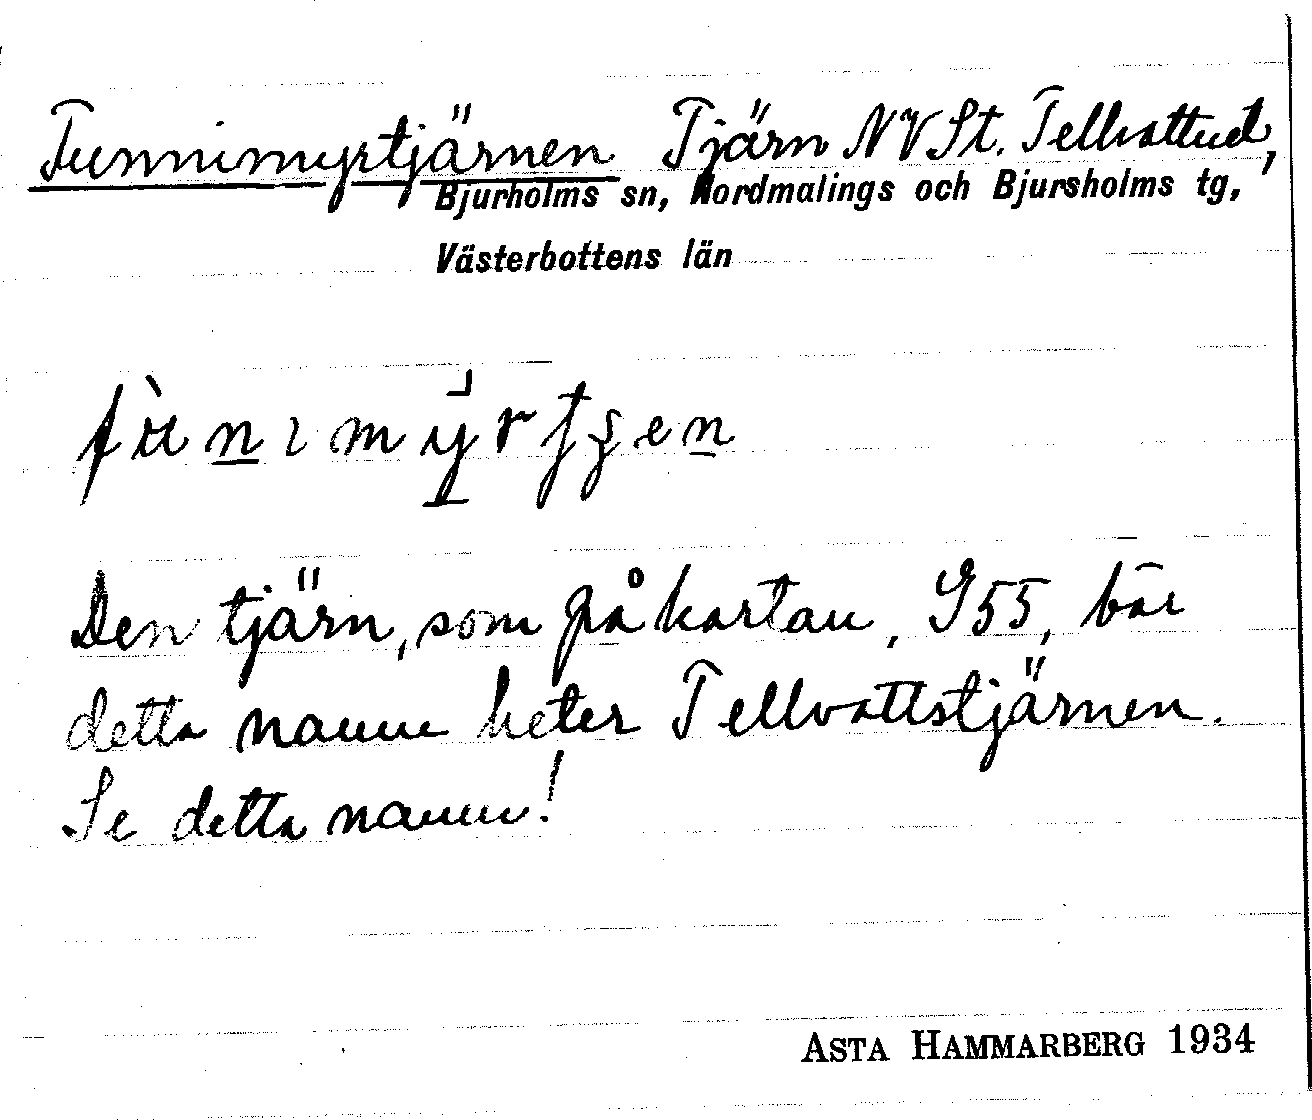 Tunnimyrtjärnen Tjärn NV St. Tellvattnet,
Bjurholms sn, Nordmalings och Bjursholms tg,
Västerbottens län
Den tjärn, som på kartan, G55, bär
detta namn heter Tellvattstjärnen.
Se detta namn!
ASTA HAMMARBERG 1934